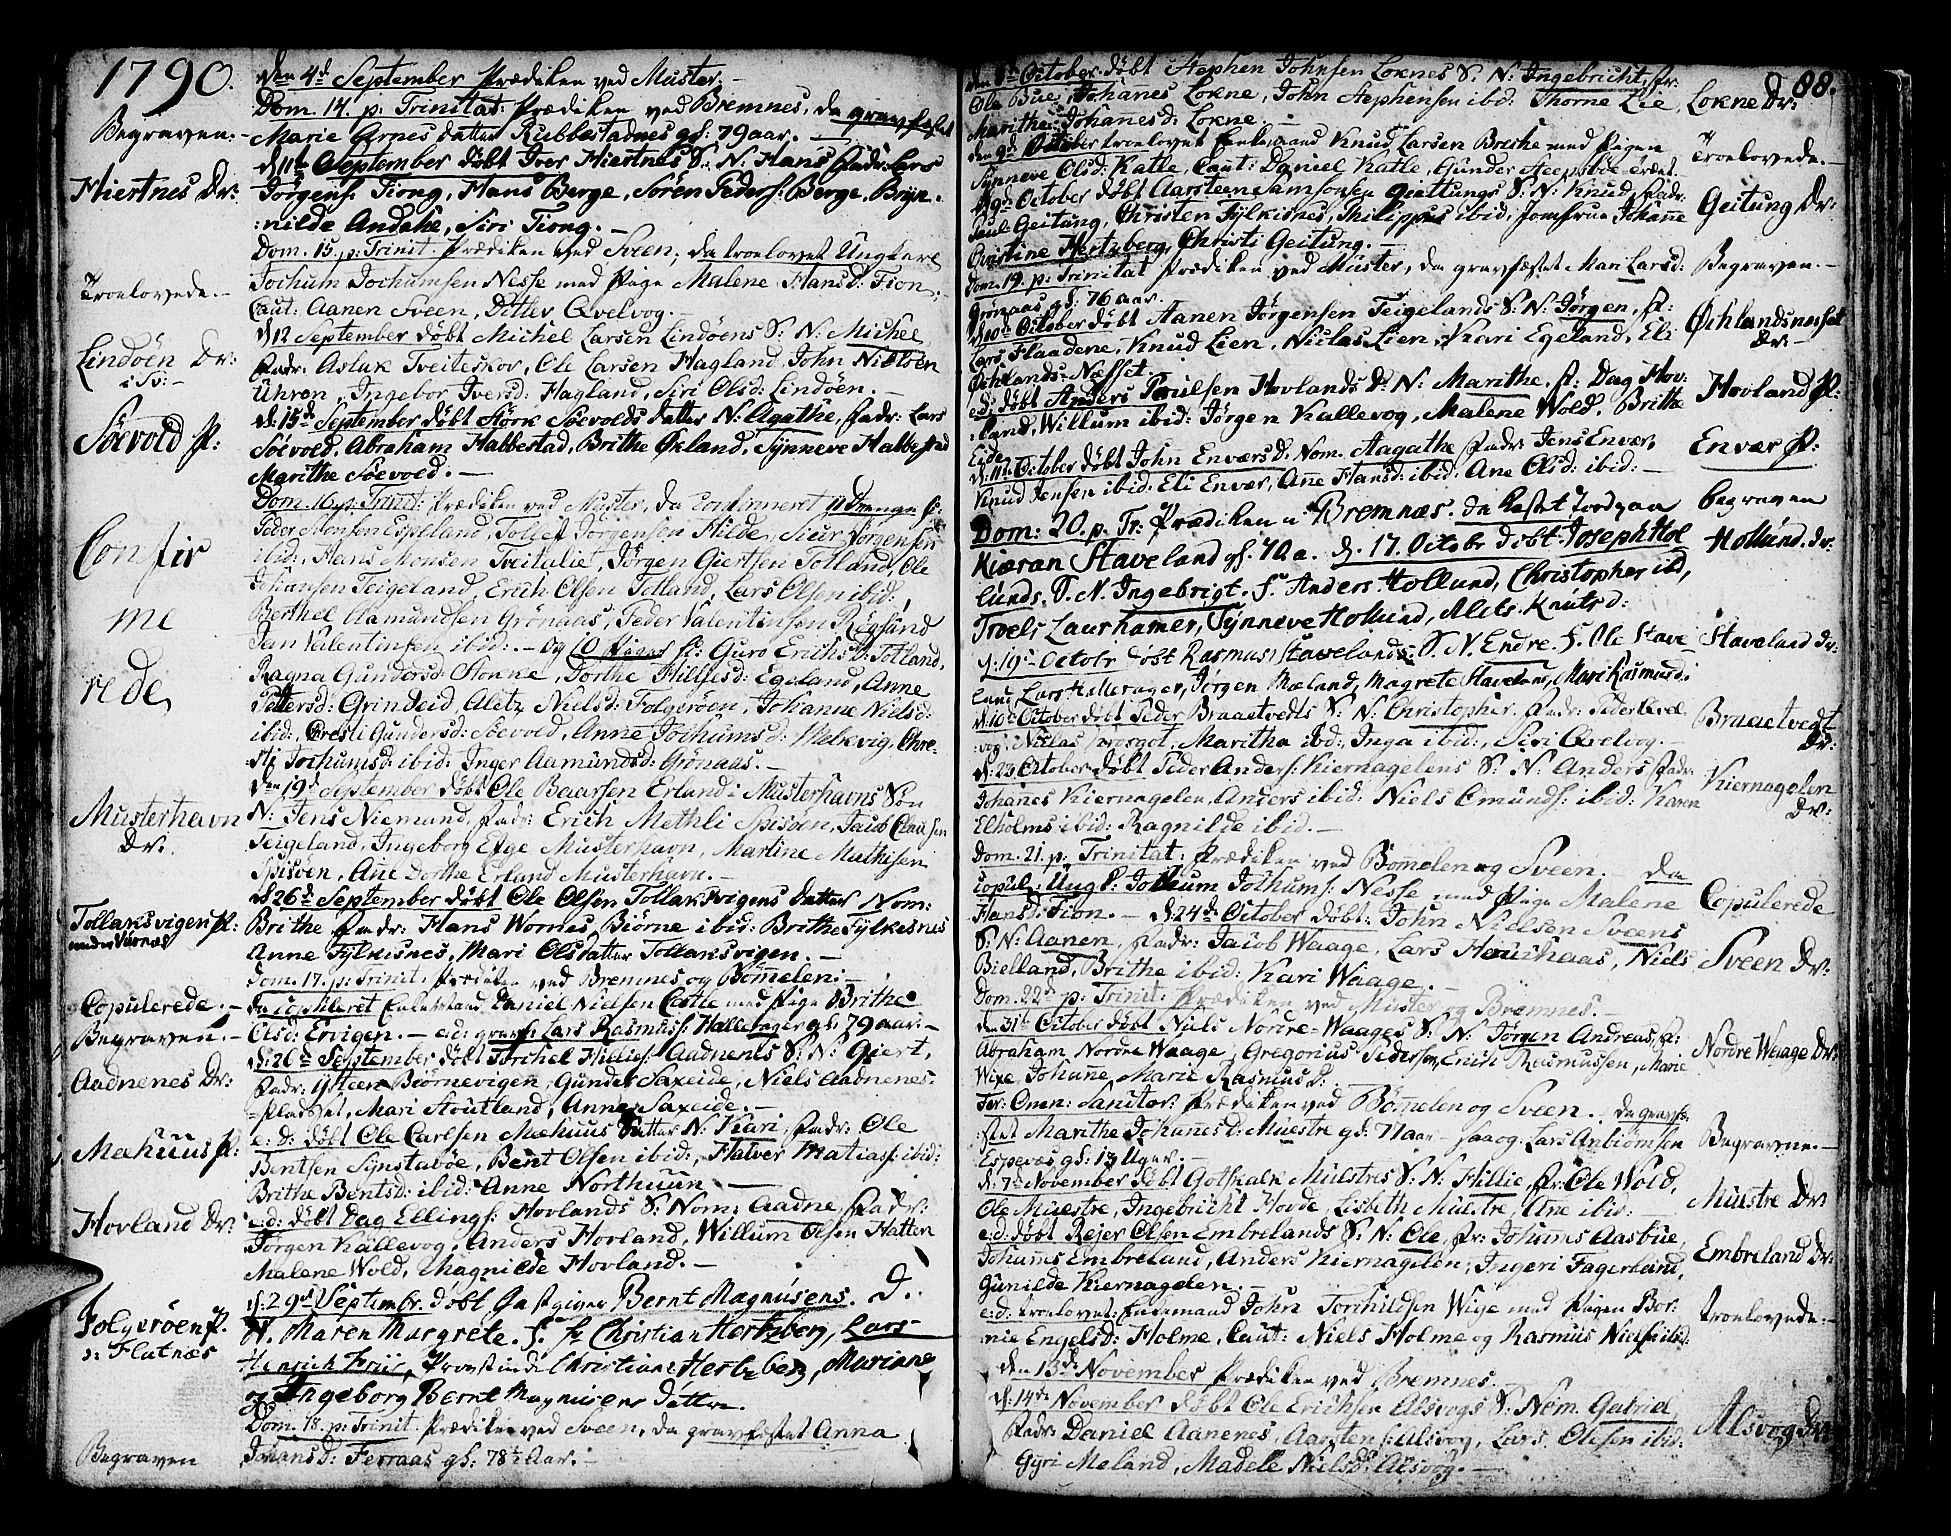 1790.
den 4d September Prædiken ved Muster.
Dom. 14. p: Trinitat: Prædiken ved Bremnes, da gravfæstet
Begraven.-
Marie Arnes datter Rubbestadnes gl: 79 aar.
d. 11te September døbt Iver Hiertnes S: N: Hans Fadr: Lars
Hiertnes Dr:
Jørgens: Tiong, Hans Berge, Sören Peders: Berge, Bryn-
:nilde Andahl, Siri Tiong.-
Dom. 15. p: Trinit: Prædiken ved Sveen, da troelovet Ungkarl
Troelovede.-
Jochum Jochumsen Nesse med Pige Malene Hansd: Fion,
Caut: Aanen Sveen, Detlev Qvelvog.-
d. 12 September døbt Michel Larsen Lindöens S: N: Michel,
Lindöen Dr:
Fadr: Aslak Tveiteskov, Ole Larsen Hagland, John Nielsen
Uhren, Ingebor Iversd: Hagland, Siri Olsd: Lindöen.-
d. 15d September døbt Störk Söevolds datter N: Agathe, Fadr: Lars
Söevold P:
Söevold, Abraham Habbestad, Brithe Økland, Synneve Habbestad
Marithe Söevold.-
Dom. 16 p: Trinit: Prædiken ved Muster, da confirmeret 11 Drenge
Peder Monsen Espeland, Tollef Jørgensen Hilde, Siur Jørgensen
Confir
ibid: Hans Monsen Tveitalie, Jørgen Giertsen Totland, Ole
Johansen Teigeland, Erich Olsen Totland, Lars Olsen ibid:
me
Berthel Aamundsen Grönaas, Peder Valentinsen Rögsund
Jan Valentinsen ibid:.- og 10 Piger Guro Erichsd: Totland,
rede,
Ragna Gundersd: Stonne, Dorthe Hillesd: Egeland, Anne
Pettersd: Grindeid, Aletz Nielsd: Folgeröen, Johanne Nielsd:
ibid: Gundersd: Söevold, Anne Jochumsd: Melkvig, Chre-
sti Jochumsd: ibid: Inger Aamundsd: Grönaas.-
den 19d September døbt Ole Baarsen Erland i Musterhavns Søn
Musterhavn Dr:
N: Jens Niemand, Fadr: Erich Methli Spisöen, Jacob Clausen
Teigeland, Ingeborg Musterhavn, Martine Mathisen
Spisöen, Ane Dorthe Erland Musterhavn.-
d. 26d September døbt Ole Olsen Tollaksvigens datter Nom:
Tollaksvigen P:
Brithe Fadr: Hans Wornes Biörne ibid: Brithe Fylkesnes
Anne Fylkesnes, Mari Olsdatter Tollaksvigen.-
Dom. 17. p: Trinit: Prædiken ved Bremnes og Bømmelen.-
Copulerede.-
da copuleret Enkemand Daniel Nielsen Catle med Pige Brithe
Begraven.-
Olsd: Ervigen.- e:d: gravf: Lars Rasmuss: Hallerager gl: 79 aar.-
d. 26d September døbt Torchel Hillies: Aadnenes S: N: Giert,
Aadnenes Dr:
Fadr: Biörnevigen, Gunder Saxeide, Niels Aadnenes-
Pladset, Mari Stoutland, Anne Saxeide.-
e:d: døbt Ole Carlsen Mæhuus datter N: Kari, Fadr: Ole
Mæhuus P:
Bentsen Synstaböe, Bent Olsen ibid:, Halver Matias: ibid:
Brithe Bentsd: ibid: Anne Northuun.-
e:d: døbt Dag Ellings: Hovlands S: Nom: Aadne, Fadr:
Hovland Dr:
Jørgen Källevog, Anders Hovland, Willum Olsen Hatten
Malene Wold, Magnilde Hovland.-
d. 29d Septembr: døbt Gastgiver Bernt Magnusens. D.
Folgeröen P.
o: Flatnæs
N. Maren Margrete. F. Hr Christian Hertzberg, Lars
Henrich Friis, Provstinde Christiane Hertzberg, Mariane
og Ingeborg Bernt Magnusens døttre.
Dom. 18. p: Trinit: Prædiken ved Sveen, da gravfæstet Anna
Begraven
Johansd: Ferraas gl: 78½ Aar.-
88.
October døbt Stephen Johnsen Loknes S: N: Ingebricht, Fr:
Lokne Dr:
Ole Bue, Johanes Lokne, John Stephensen ibid: Thorne Lie,
Marithe Johanesd: Lokne.-
den 9d October troelovet Enkemand Knud Larsen Breche med Pigen
Troelovede.-
Synneve Olsd: Katle, Caut: Daniel Katle, Gunder
9d October døbt Aarsteen Samsonsen Geitungs S: N: Knud, Fadr:
Geitung Dr:
Poul Geitung, Christen Fylkisnes, Philippus ibid, Jomfrue Johanne
Christine Hertzberg, Christi Geitung.-
Dom. 19. p: Trinitat Prædiken ved Muster, da gravfæstet Mari Larsd:
Begraven.-
Grönaas gl: 76 aar.
d. 10d October døbt Aanen Jørgensen Teigelands S: N: Jørgen, F:
Økhlandsnæsset Dr:-
Lars Flaadene, Knud Lien, Niclas Lien, Kari Egeland, Eli
Økhlands-Næsset.-
e:d: døbt Anders Poulsen Hovlands D: N: Marithe, F: Dag Hov:
Hovland P:
:land, Willum ibid: Jørgen Kallevog, Malene Wold, Brithe
Eide.
d. 11te October døbt John Enværs D: Nom: Aagathe Fadr: Jens Envær,
Envær P:
Knud Jensen ibid: Eli Envær, Ane Hansd: ibid: Ane Olsd: ibid:-
Dom: 20. p. Tr: Prædiken i Bremnæs. da kastet Jord paa
Begraven
Kiæran Staveland gl. 70 a. d. 17. Octobr døbt Joseph Hol
Hollund. Dr.
lunds. S. N. Ingebrigt. F. Anders Hollund, Christopher ibd,
Troels Laurhamer, Synneve Hollund, Alets Knutsd:
d. 19d Octobr døbt Rasmus Stavelands S. N. Endre. F. Ole Stave
Staveland Dr:
land Lars Meraager, Jørgen Mæland, Magrete Staveland, Mari Rasmusd:
October døbt Peder Braatvedts S: N: Christopher, Fadr: Peder Qvel
Braatvedt Dr:
:vog, Niclas Marithe ibd: Inga ibid:, Siri Qvelvog.-
d. 23 October døbt Peder Anders: Kiernagelens S: N: Anders Fadr:
Kiernagelen Dr:
Johanes Kiernagelen, Anders ibid: Niels Omunds: ibid: Karen
Elholms ibid: Ragnilde ibid.-
Dom. 21. p: Trinitat: Prædiken ved Bømelen og Sveen. da
copul: Ungk: Jochum Jochums: Nesse med Pige Malene
Copulerede
Hansd: Fion.- d. 24d October døbt: John Nielsen Sveens
S: N: Aanen, Fadr: Jacob Waage, Lars Houkaas, Niels
Sveen Dr:
Bielland, Brithe ibid: Kari Waage.-
Dom. 22d p: Trinit: Prædiken ved Muster og Bremnes.-
den 31te October døbt Niels Nordre-Waages S: N: Jørgen Andreas, F:
Nordre Waage Dr:
Abraham Nordre Waage, Gregorius Pedersen, Erich Rasmussen, Marie
Wixe, Johane Marie Rasmusd:
Fer: Omn: Sanctor: Prædiken ved Bømelen og Sveen. da gravf:
:stet Marithe Johanesd: Muestre gl: 77 aar - saa og Lars Anbiörnsen
Begravne.-
Espevæs gl: 13 Uger.-
d. 7d November døbt Gotskalk Muestres S: N: Hillie, Fr: Ole Wold,
Muestre Dr:
Ole Muestre, Ingebricht Hovde, Lisbeth Muestre, Ane ibid:
e:d: døbt Rejer Olsen Embrelands S: N: Ole, Fr: Johanns Aasbue,
Embreland Dr:
Johannes Embreland, Anders Kiernagelen, Ingeri Fagerland,
Gunilde Kiernagelen.-
e:d: troelovet: Enkemand John Torkildsen Wige med Pigen Bor:
troelovede.-
:nie Engelsd: Holme, Caut: Niels Holme og Rasmus
den 13d November Prædiken ved Bremnes.
d. 14d November døbt Ole Erichsen Alsvogs S: Nom: Gabriel
Alsvog Dr:
Fadr: Daniel Aanenes, Aarsten Alsvog, Lars Olesen ibid:
Gyri Meland, Madele Nielsd: Alsvog.-